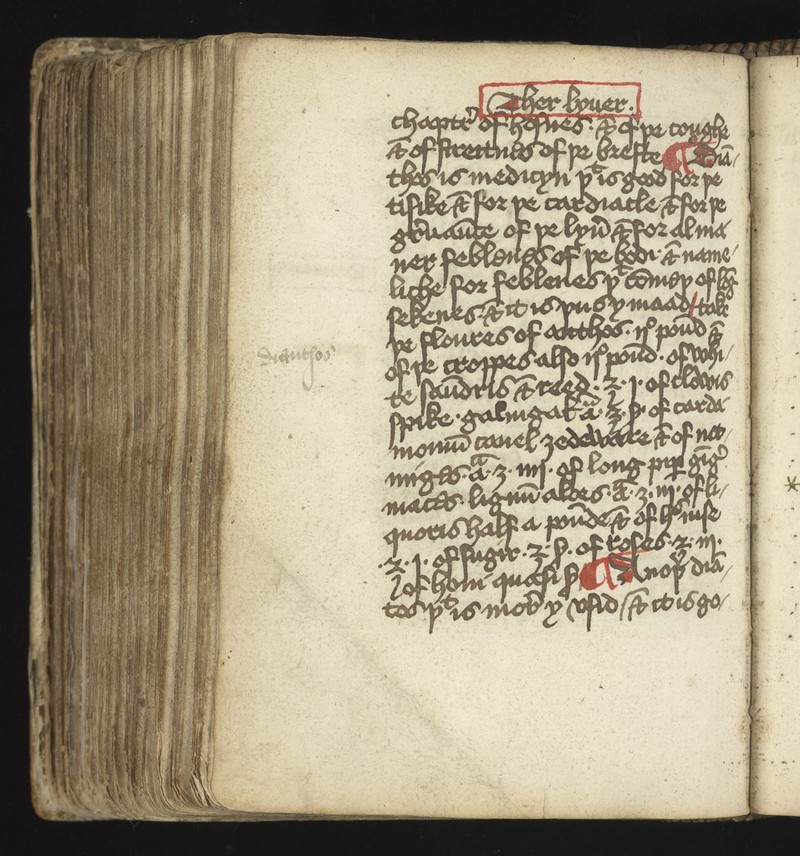 Ther lyuer.
chaptr̛ of hosnes. ⁊ of þe coughe
⁊ of streitnes of þe breste ¶ Diā-
thos is medicyn þͭ is good for þe
tisike ⁊ for þe cardiacle ⁊ for þe
gr̛uaūce of þe lyū ⁊ for al ma-
ner feblenes of þe bodi. ⁊ name-
liche for feblenes þͭ comeþ of
sekenes. ⁊ it is þus y maad / take
þe floures of anthos. ijͦ poūd ⁊
of þe croppes also ijͦ poūd. of whi-
te saūdris ⁊ reed. ʒ. j. of clowis
spike. galingal ā. ʒ. ß. of carda-
momū canel zedeware ⁊ of not-
miges. ā. ʒ. iiij. of long pep̲ gīgr̛
maces. lignū aloes. ā. ʒ. iij. of li-
quoris half a poūde ⁊ of
ʒ. j. of sugir. ʒ. ß. of roses. ʒ. iij.
of honi quasi ß ¶ Anoþ̛ diā-
tos þͭ is mor̛ y vsid / ⁊ it is go-
dianthos